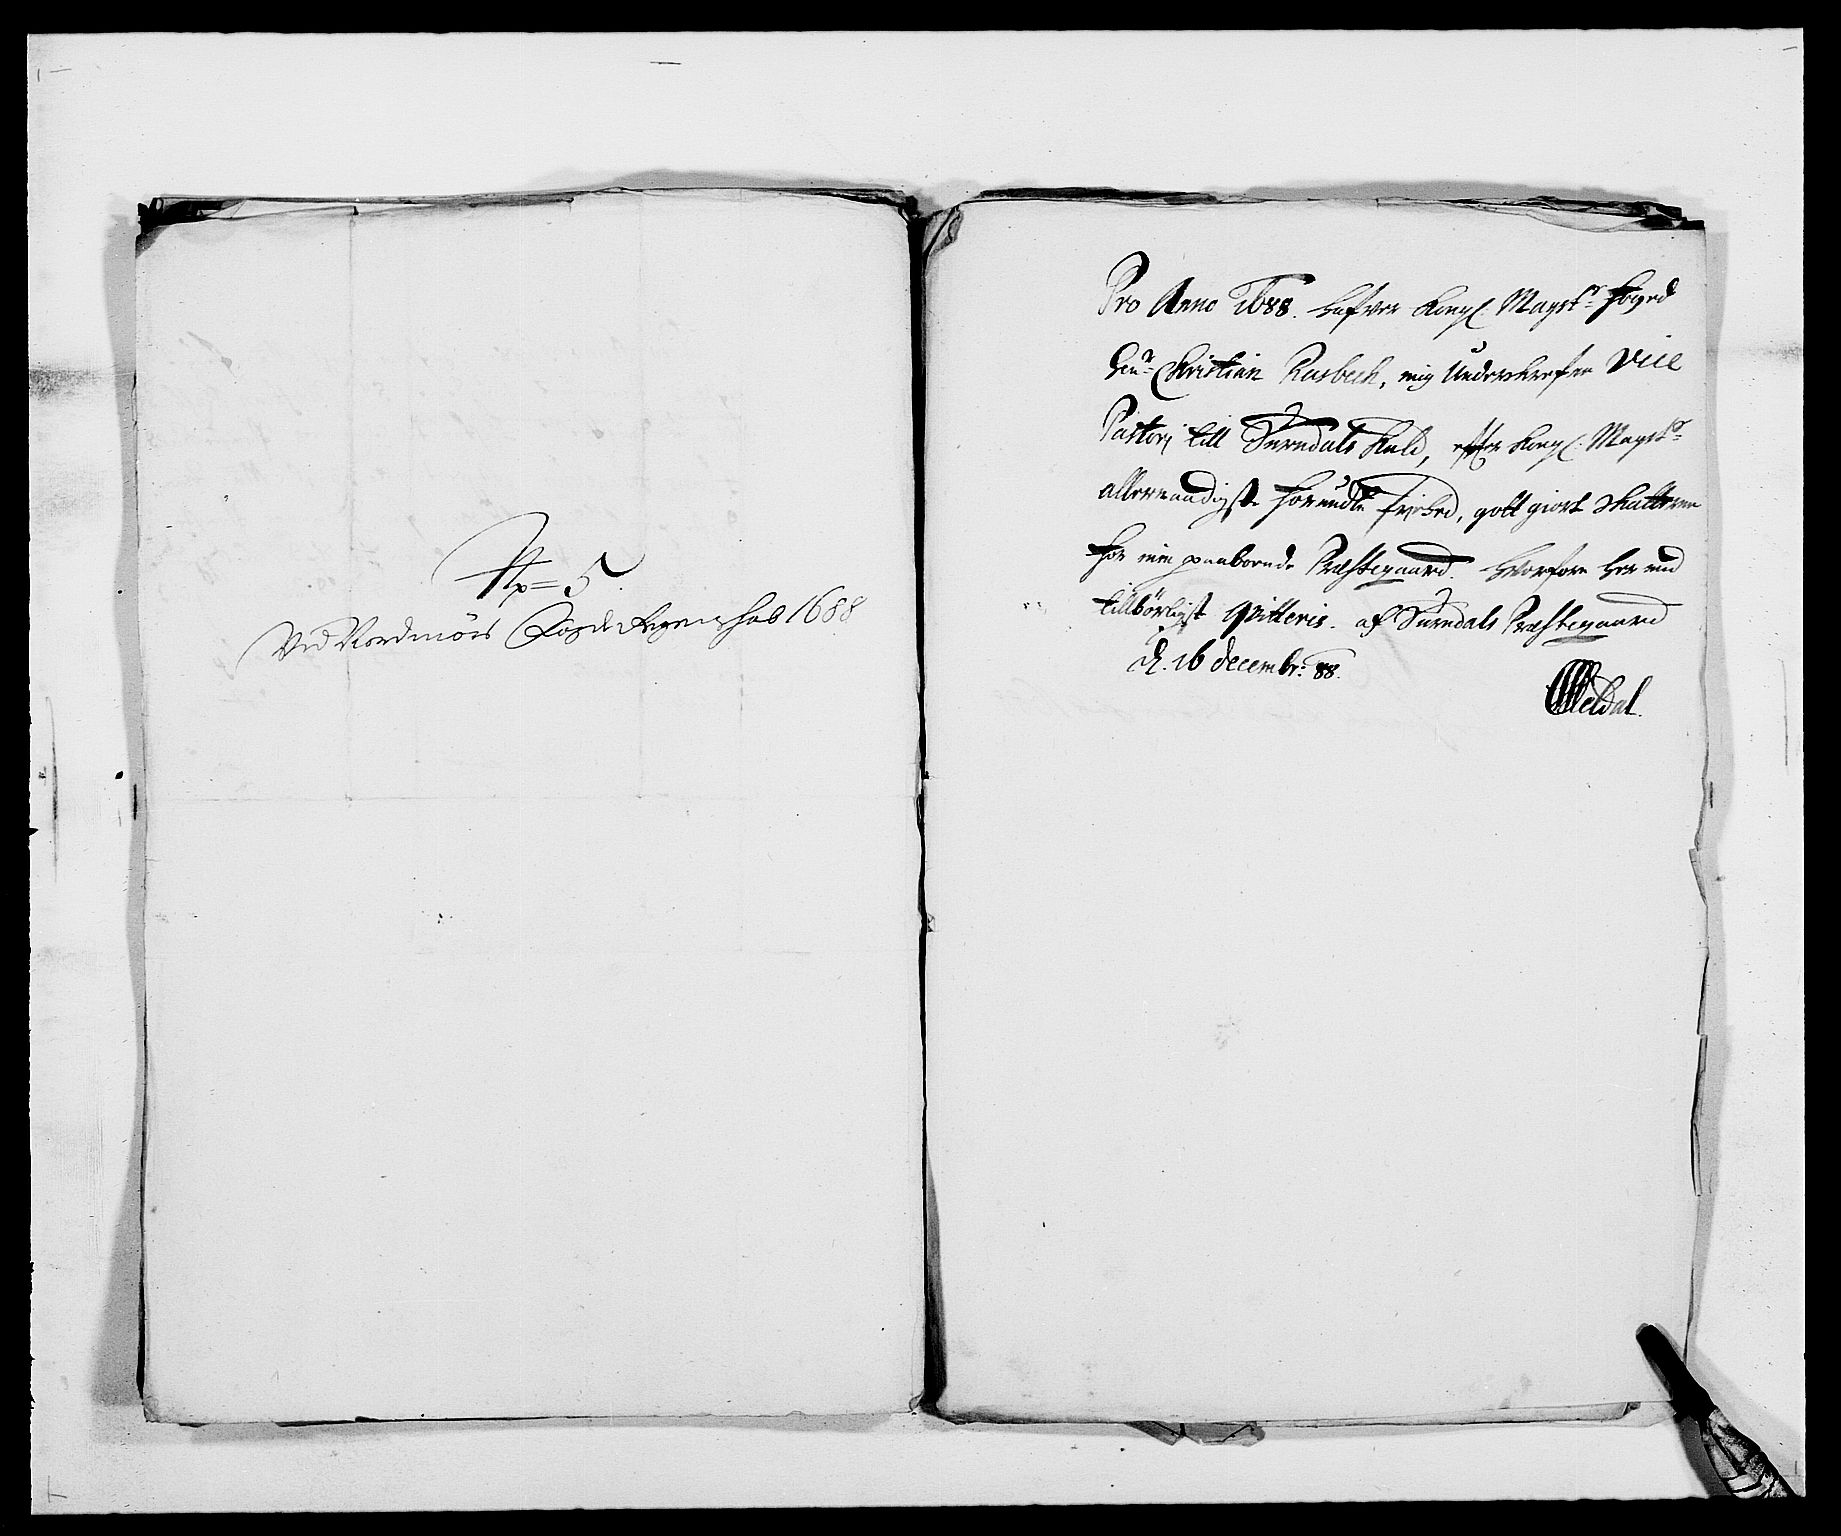 No = 5.
Ved Nordmörs Fogderegenschab 1688
Pro Anno 1688. hafver Kongl: Mayst:s foged
Sr. Christian Rasbech, mig Underskrefen Vice
Pastori till Surndals Kald, efter Kongl: Mayst:s
allernaadigste forundte frihed, gott giort Skatterne
for min paaboende Præstegaard. Hvorfore her med
tillbörligst qvitteris. af Surndals Præstegaard
d. 16 decembr: 88.
Meldal.